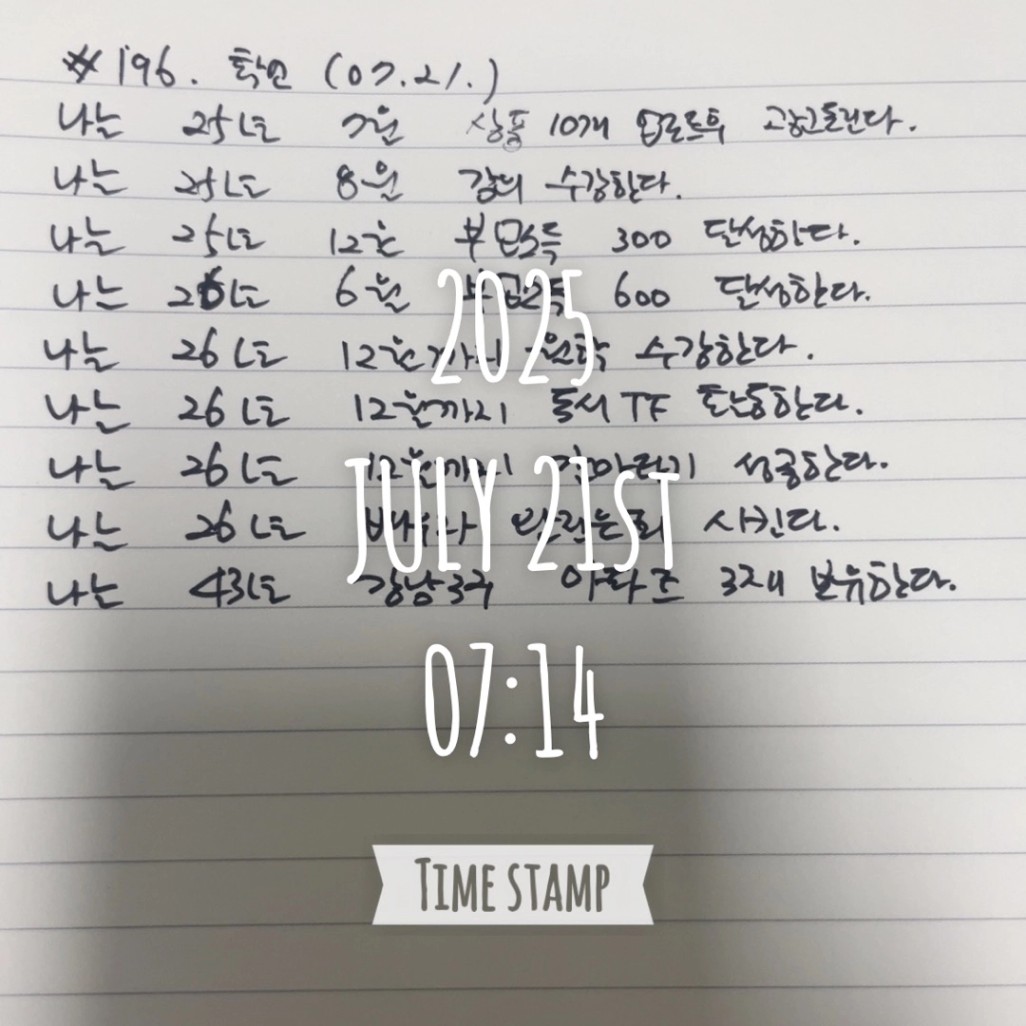 #196. 확언 (07.21.)
나는 25년 7월 상품 10개 업로드후 광고돌린다.
나는 25년 8월 강의 수강한다.
나는 25년 12월 부업소득 300 달성한다.
나는 26년 6월 부업소득 600 달성한다.
나는 26년 12월까지 수강한다.
나는 26년 12월까지 독서 TF 활동한다.
나는 26년 12월까지 성공한다.
나는 26년 사킨다.
나는 43년 강남3구 아파트 3채 보유한다.
2025
JULY 21ST
07:14
TIME STAMP